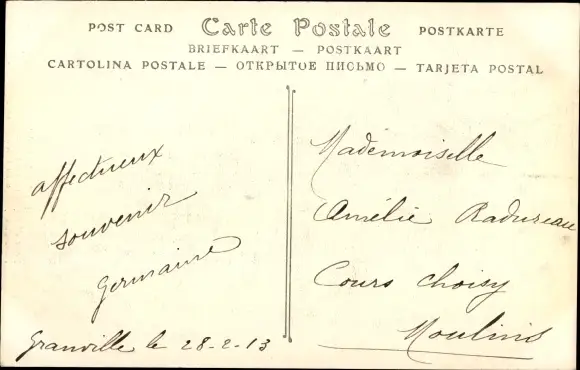 POST CARD Carte Postale POSTKARTE
BRIEFKAART — POSTKAART
CARTOLINA POSTALE — ОТКРЫТОЕ ПИСЬМО — TARJETA POSTAL
affectueux
souvenir
Germaine
Granville le 28-2-13
Mademoiselle
Amélie Radureau
Cours choisy
Moulins